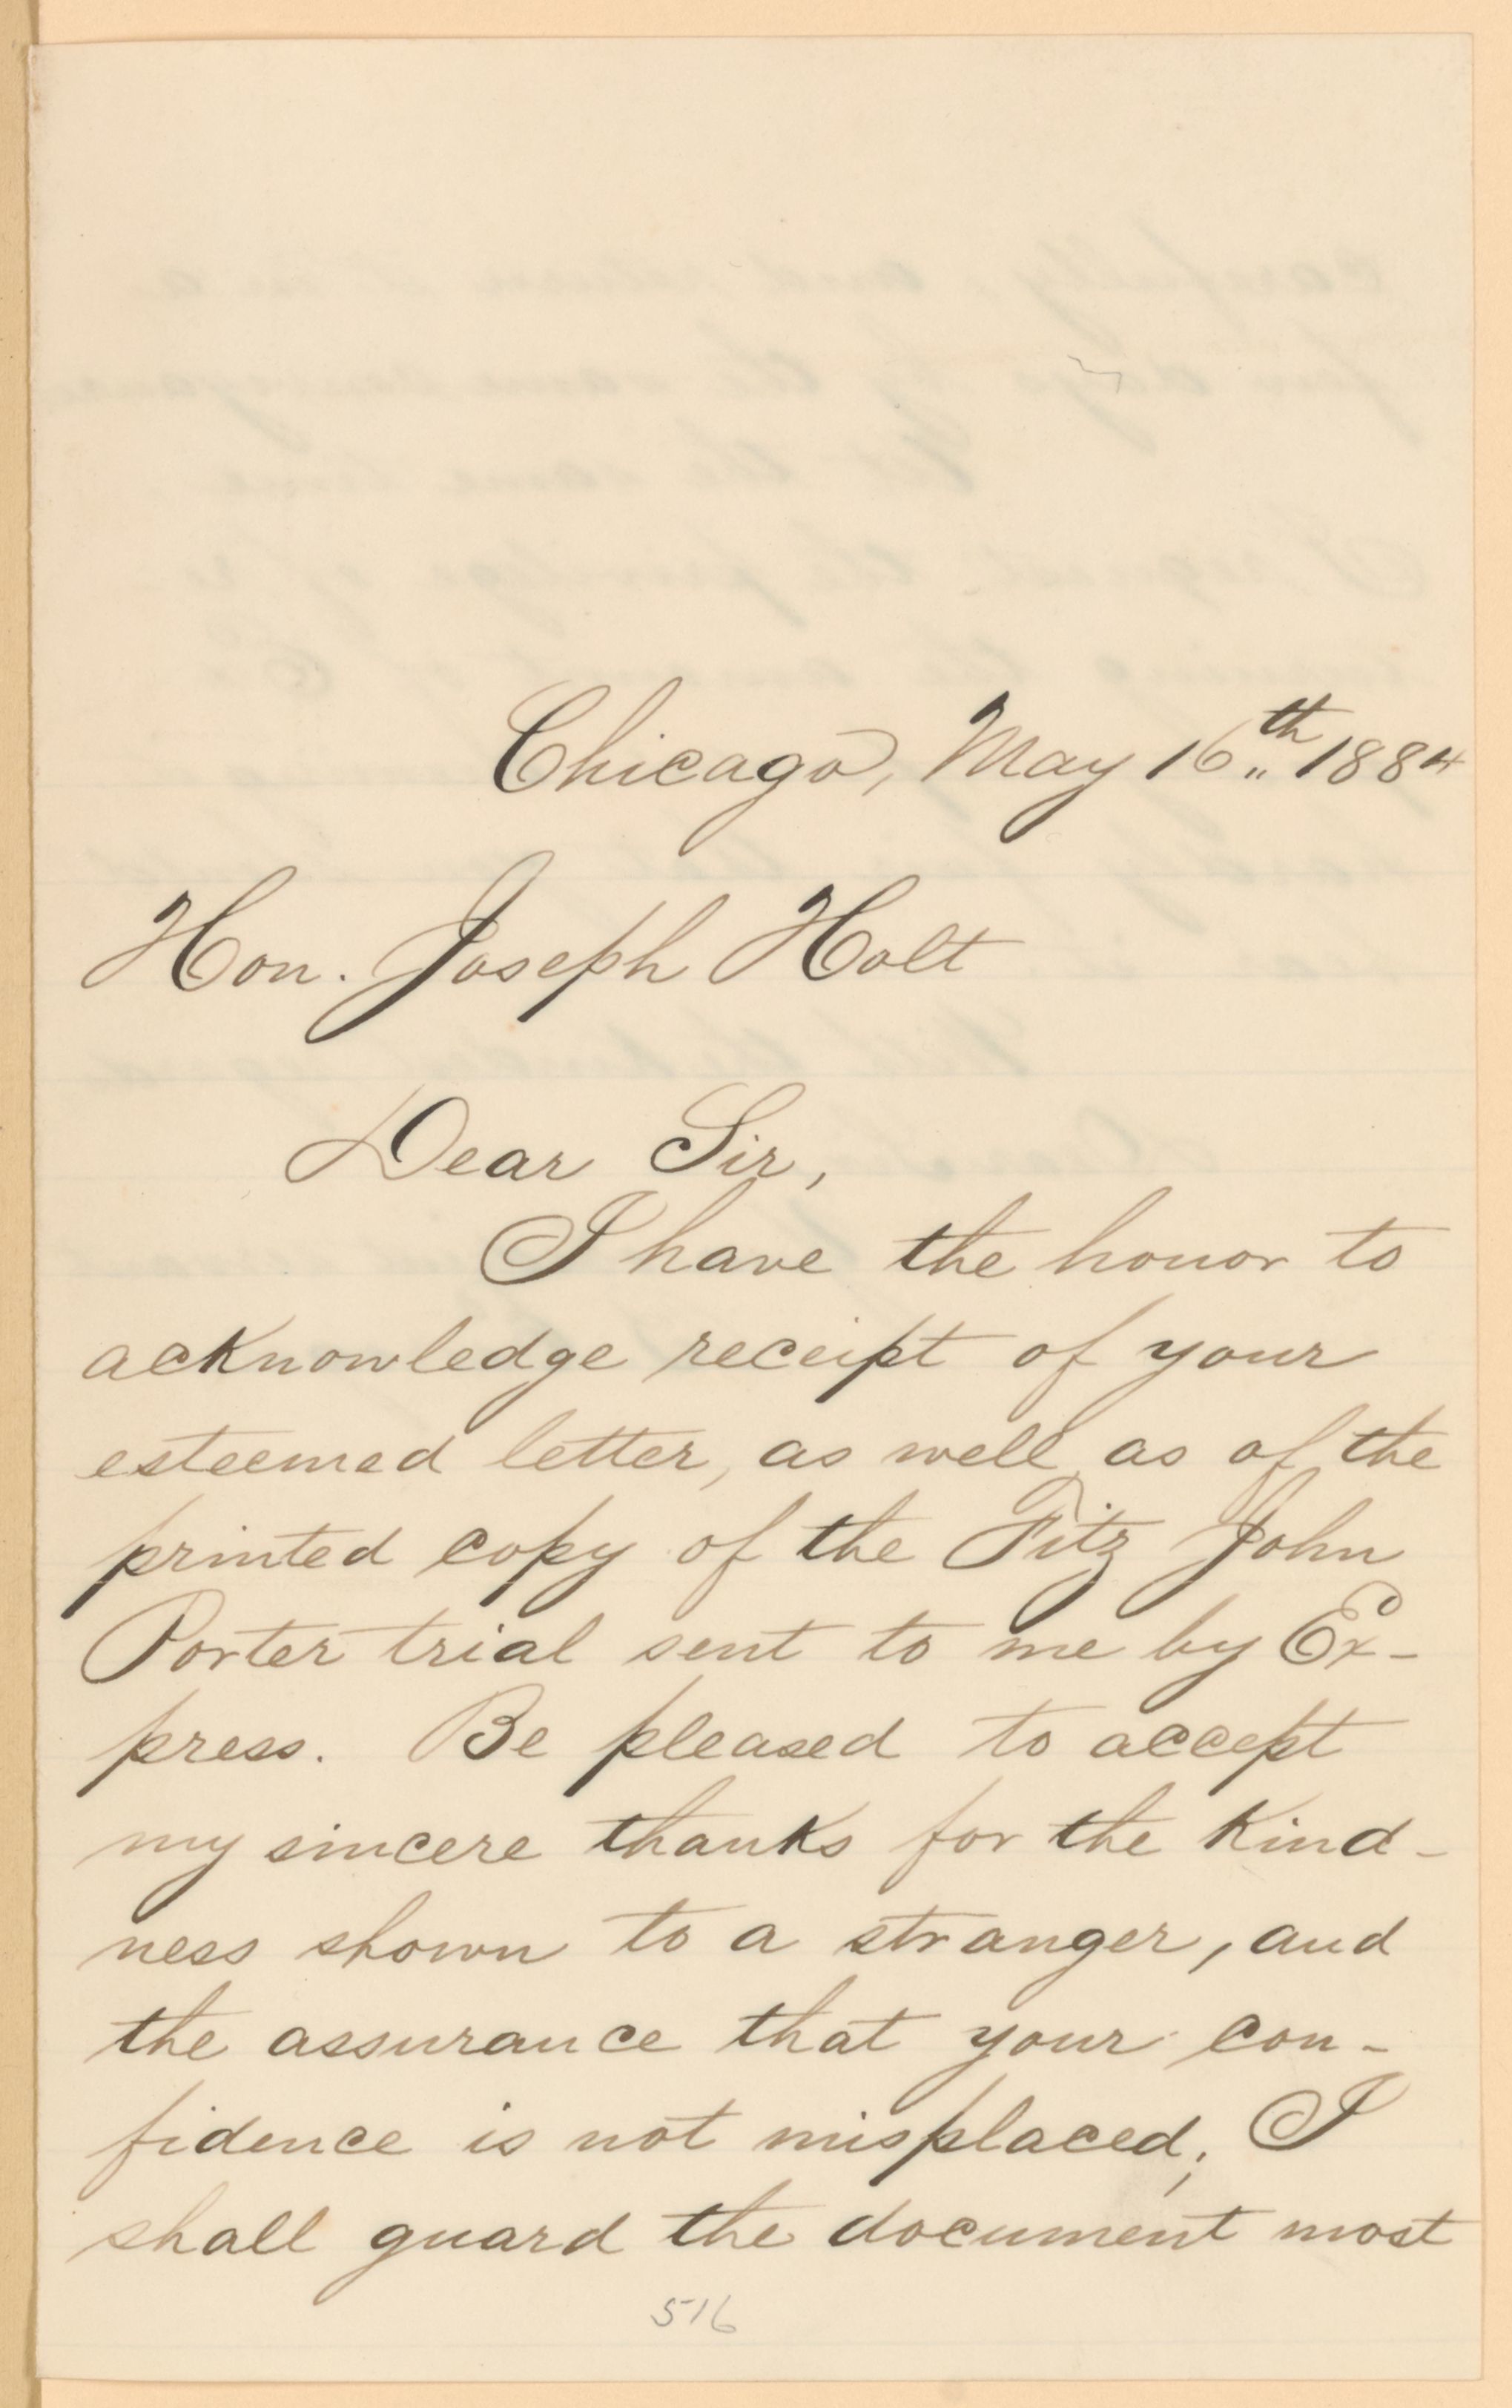 Chicago, May 16th 1884
Hon. Joseph Holt
Dear Sir,
I have the honor to
acknowledge receipt of your
esteemed letter, as well as of the
printed copy of the Fitz John
Porter trial sent to me by Ex-
press. Be pleased to accept
my sincere thanks for the kind-
ness shown to a stranger, and
the assurance that your con-
fidence is not misplaced; I
shall guard the document most
516